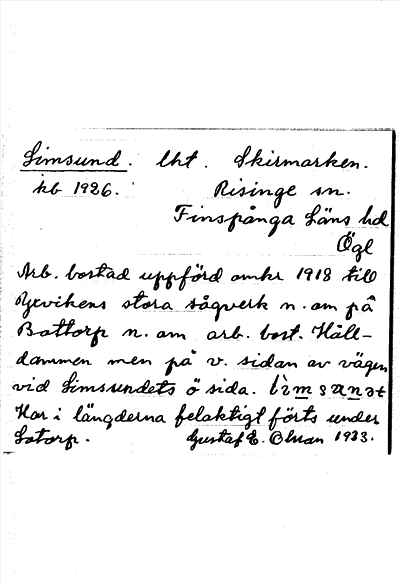 Limsund. lht. Skirmarken.
kb 1926. Risinge sn.
Finspånga Läns hd
Ögl
Arb. bostad uppförd omkr 1918 till
Ryvikens stora sågverk n. om på
Bottorp n. om arb. bost. Håll-
dammen men på v. sidan av vägen
vid Limsundets ö sida.
Har i längderna felaktigt förts under
Lotorp. Gustaf E. Olson 1933.